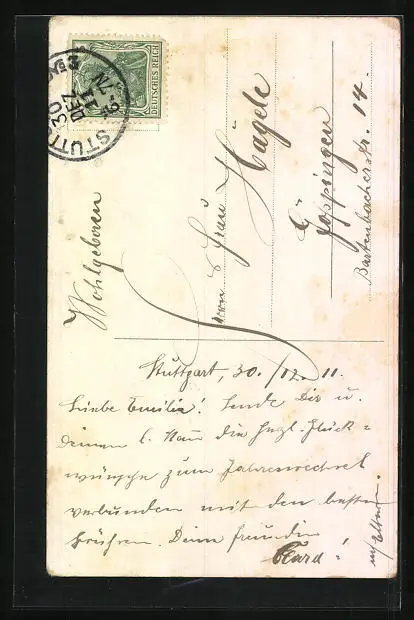 DEUTSCHES REICH
STUTTG
30 DEZ
11
7-8 N
No 3
Wohlgeboren
Herrn u Frau
Hägele
Göppingen
Bartenbacherstr. 14.
Stuttgart, 30./12. 11.
Liebe Emilie! Sende Dir u.
Deinem l. Mann die herzl. Glück=
wünsche zum Jahreswechsel
verbunden mit den besten
Grüßen. Deine Freundin